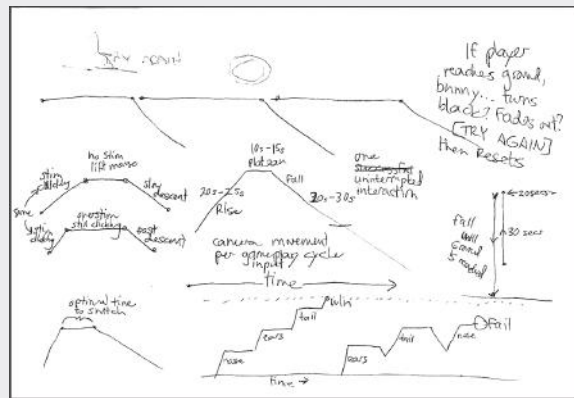 TRY AGAIN
If player
reaches ground,
bunny... turns
black? Fades out?
[TRY AGAIN]
then Resets
stim
clicking
no stim
lift mouse
slow
descent
same
still
clicking
overstim
still clicking
fast
descent
10s-15s
plateau
20s-25s
Rise
fall
20s-30s
one
successful
uninterrupted
interaction
camera movement
per gameplay cycle
input
time
20secs
30 secs
fall
until
ground
is reached
optimal time
to switch
nose
ears
tail
win
ears
tail
nose
fail
time →